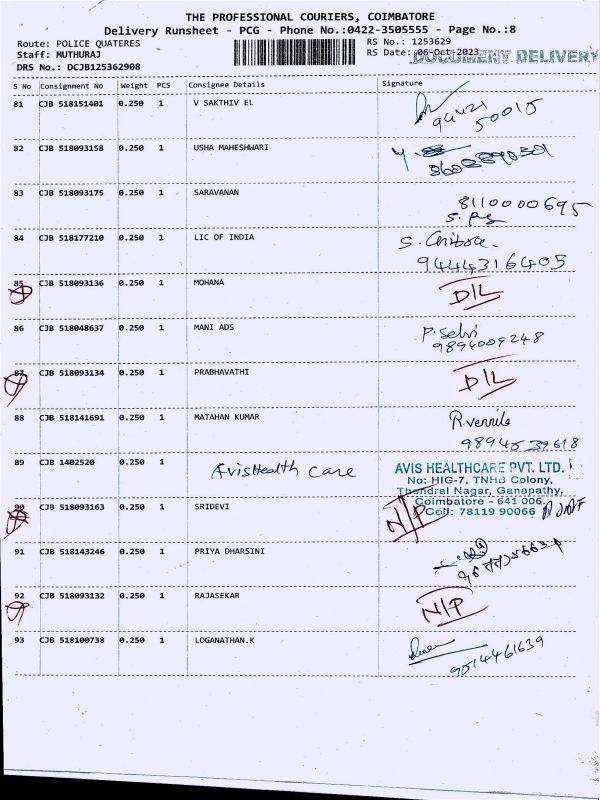 THE PROFESSIONAL COURIERS, COIMBATORE
Delivery Runsheet - PCG - Phone No.:0422-3505555 - Page No.:8
Route: POLICE QUATERES
RS No.: 1253629
Staff: MUTHURAJ
RS Date: 06-Oct-2023
DOCUMENT DELIVERY
DRS No.: DCJB125362908
S No Consignment No Weight PCS Consignee Details Signature
81 CJB 518151401 0.250 1 V SAKTHIV EL
94421
50015
82 CJB 518093158 0.250 1 USHA MAHESHWARI
83 CJB 518093175 0.250 1 SARAVANAN
8110000695
84 CJB 518177210 0.250 1 LIC OF INDIA
9444316405
85 CJB 518093136 0.250 1 MOHANA D/L
86 CJB 518048637 0.250 1 MANI ADS P. Selvi
9894009248
87 CJB 518093134 0.250 1 PRABHAVATHI D/L
88 CJB 518141691 0.250 1 MATAHAN KUMAR R.vennila
9894539618
89 CJB 1402520 0.250 1 AvisHealth care
AVIS HEALTHCARE PVT. LTD.
No: HIG-7, TNHB Colony,
Thendral Nagar, Ganapathy,
Coimbatore - 641 006.
Cell: 78119 90066
90 CJB 518093163 0.250 1 SRIDEVI N/P
91 CJB 518143246 0.250 1 PRIYA DHARSINI
92 CJB 518093132 0.250 1 RAJASEKAR N/P
93 CJB 518100738 0.250 1 LOGANATHAN.K
9514461639